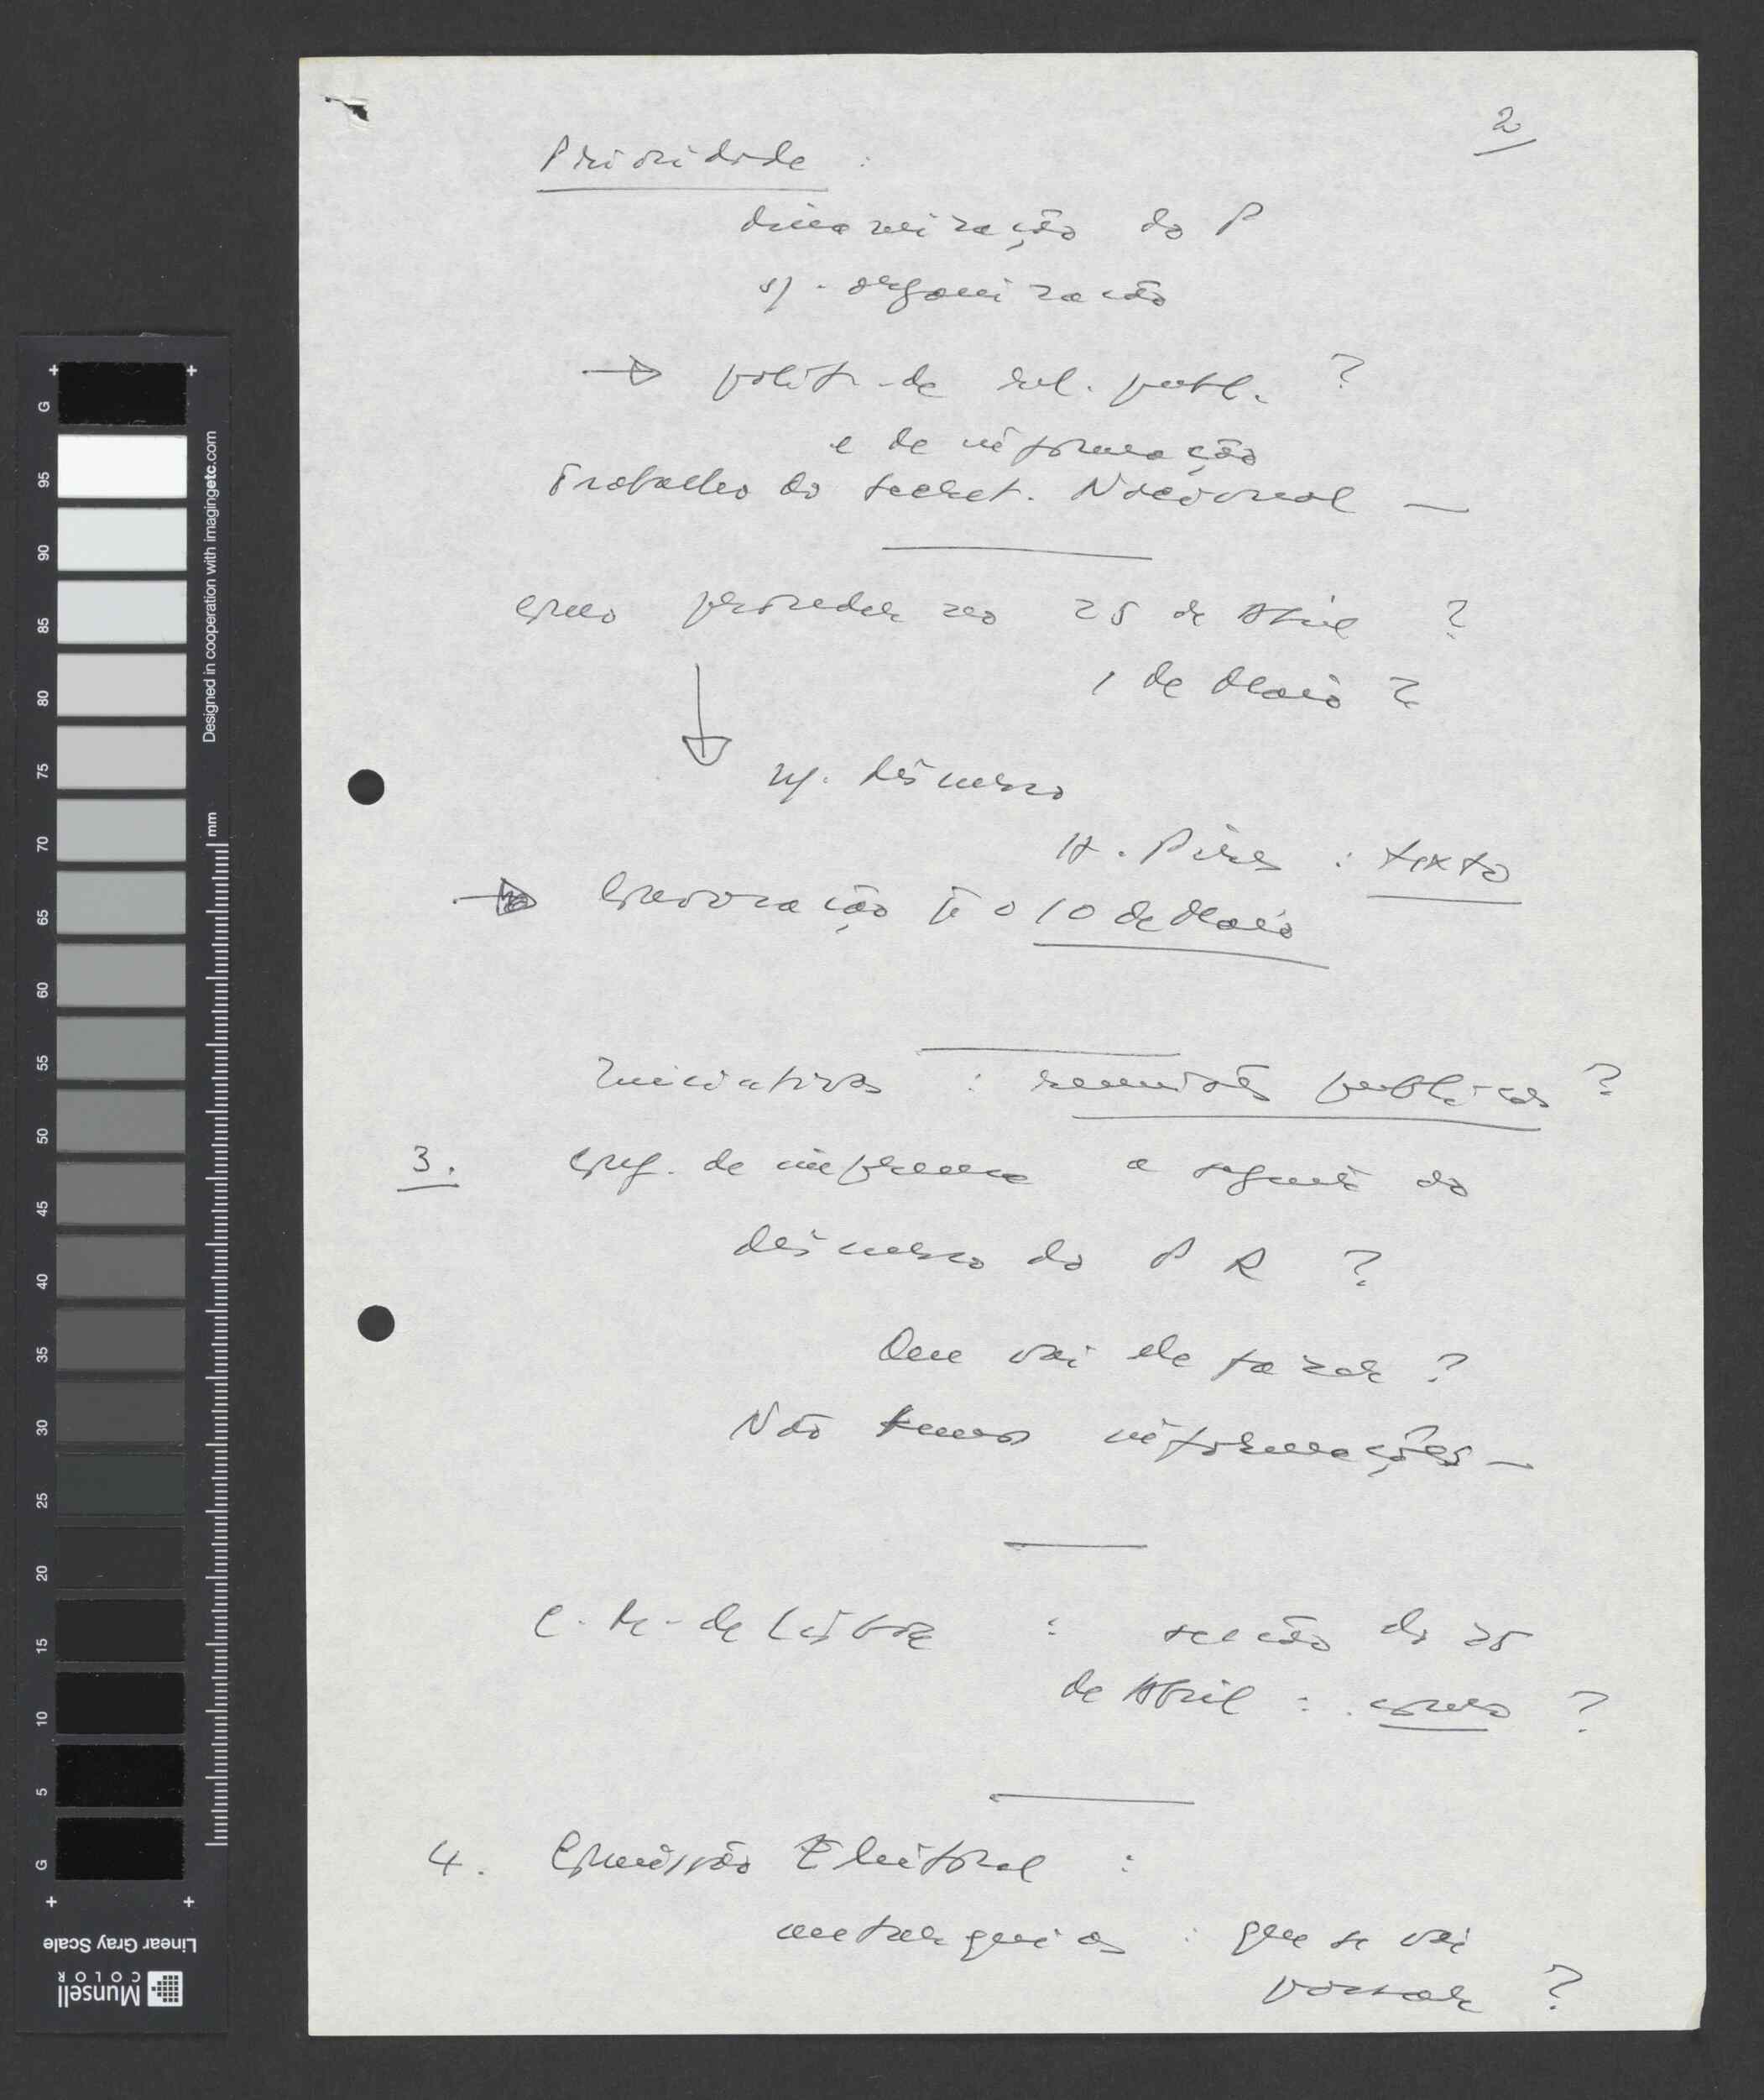 2
Prioridade :
dinamização do P
s/. organização
→ polít. de rel. publ. ?
e de informação
Trabalho do Secret. Nacional —
Como proceder no 25 de Abril ?
1 de Maio ?
m/. discurso
A. Pires : texto
→ Convocação o 10 de Maio
Iniciativas : reuniões publicas ?
3. Conf. de imprensa a seguir ao
discurso do P R ?
Que vai ele fazer ?
Não temos informações —
C. M. de Lisboa : sessão do 25
de Abril : como ?
4. Comissão Eleitoral :
autarquias : que se vai
passar ?
G 95 90 85 80 75 70 65 60 55 50 45 40 35 30 25 20 15 10 5 G
Designed in cooperation with imagingetc.com
mm
Linear Gray Scale
Munsell
COLOR